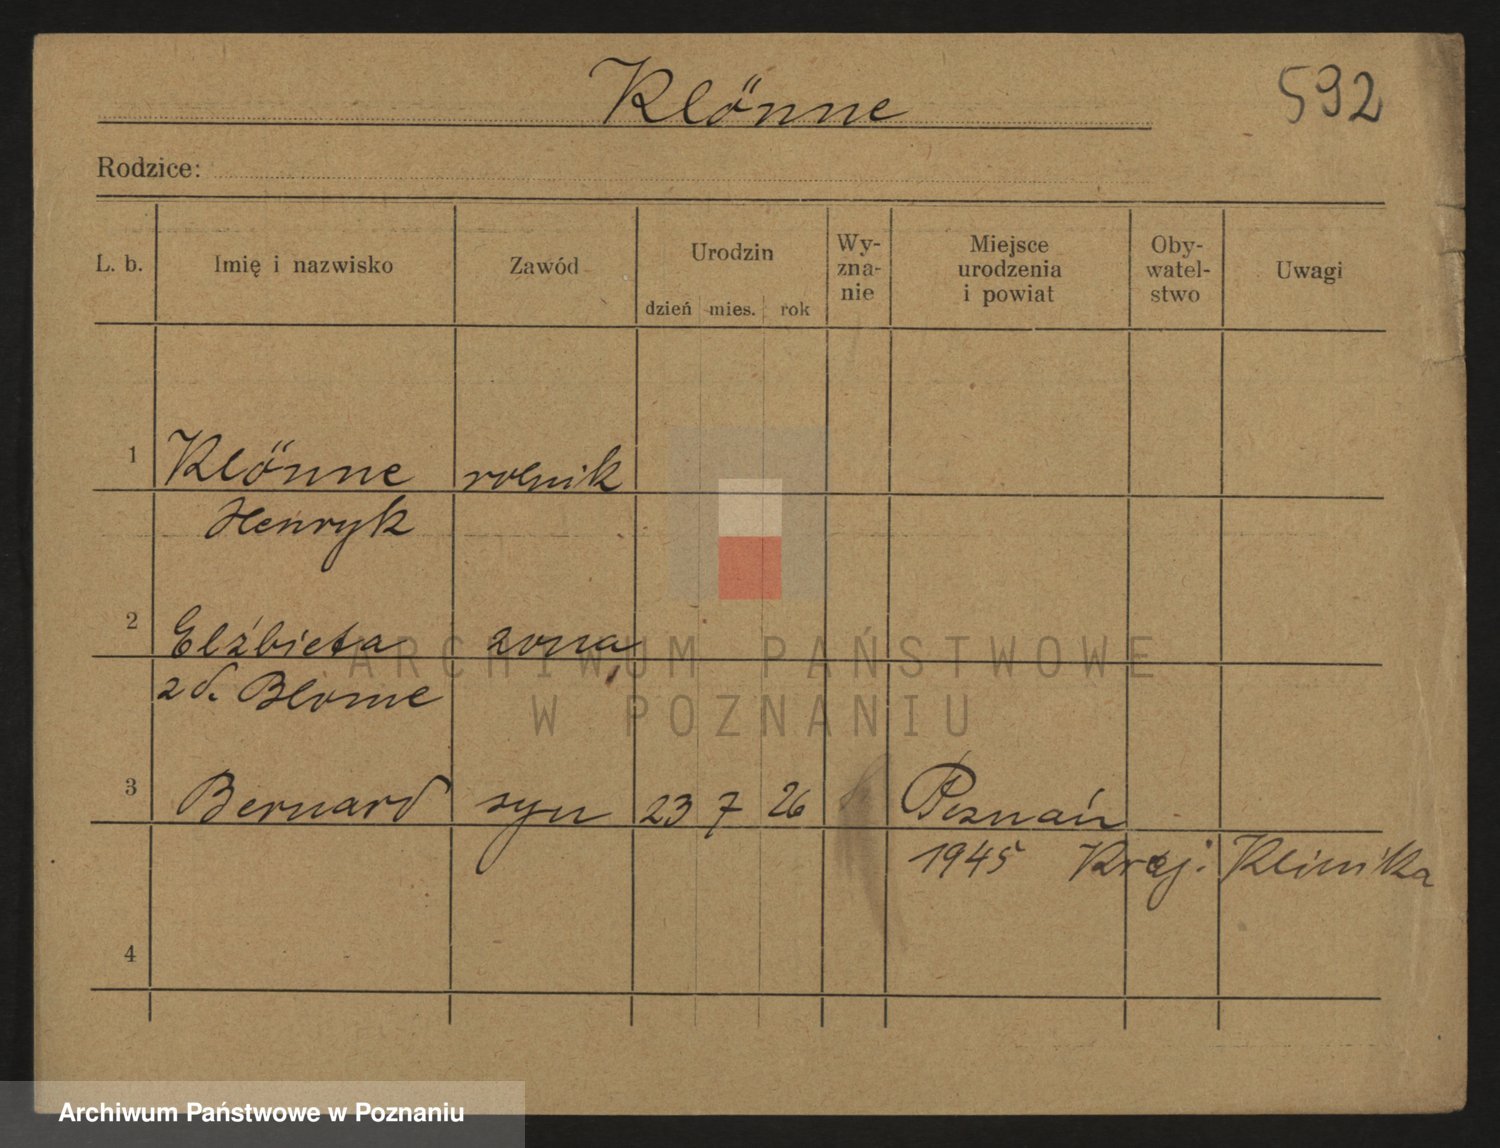 Klönne
592
Rodzice:
L. b. Imię i nazwisko Zawód Urodzin dzień mies. rok Wy-zna-nie Miejsce urodzenia i powiat Oby-watel-stwo Uwagi
1 Klönne rolnik
Henryk
2 Elżbieta żona
z d. Blome
3 Bernard syn 23 7 26 Poznań
1945 Kraj. Klinika
4
ARCHIWUM PAŃSTWOWE
W POZNANIU
Archiwum Państwowe w Poznaniu